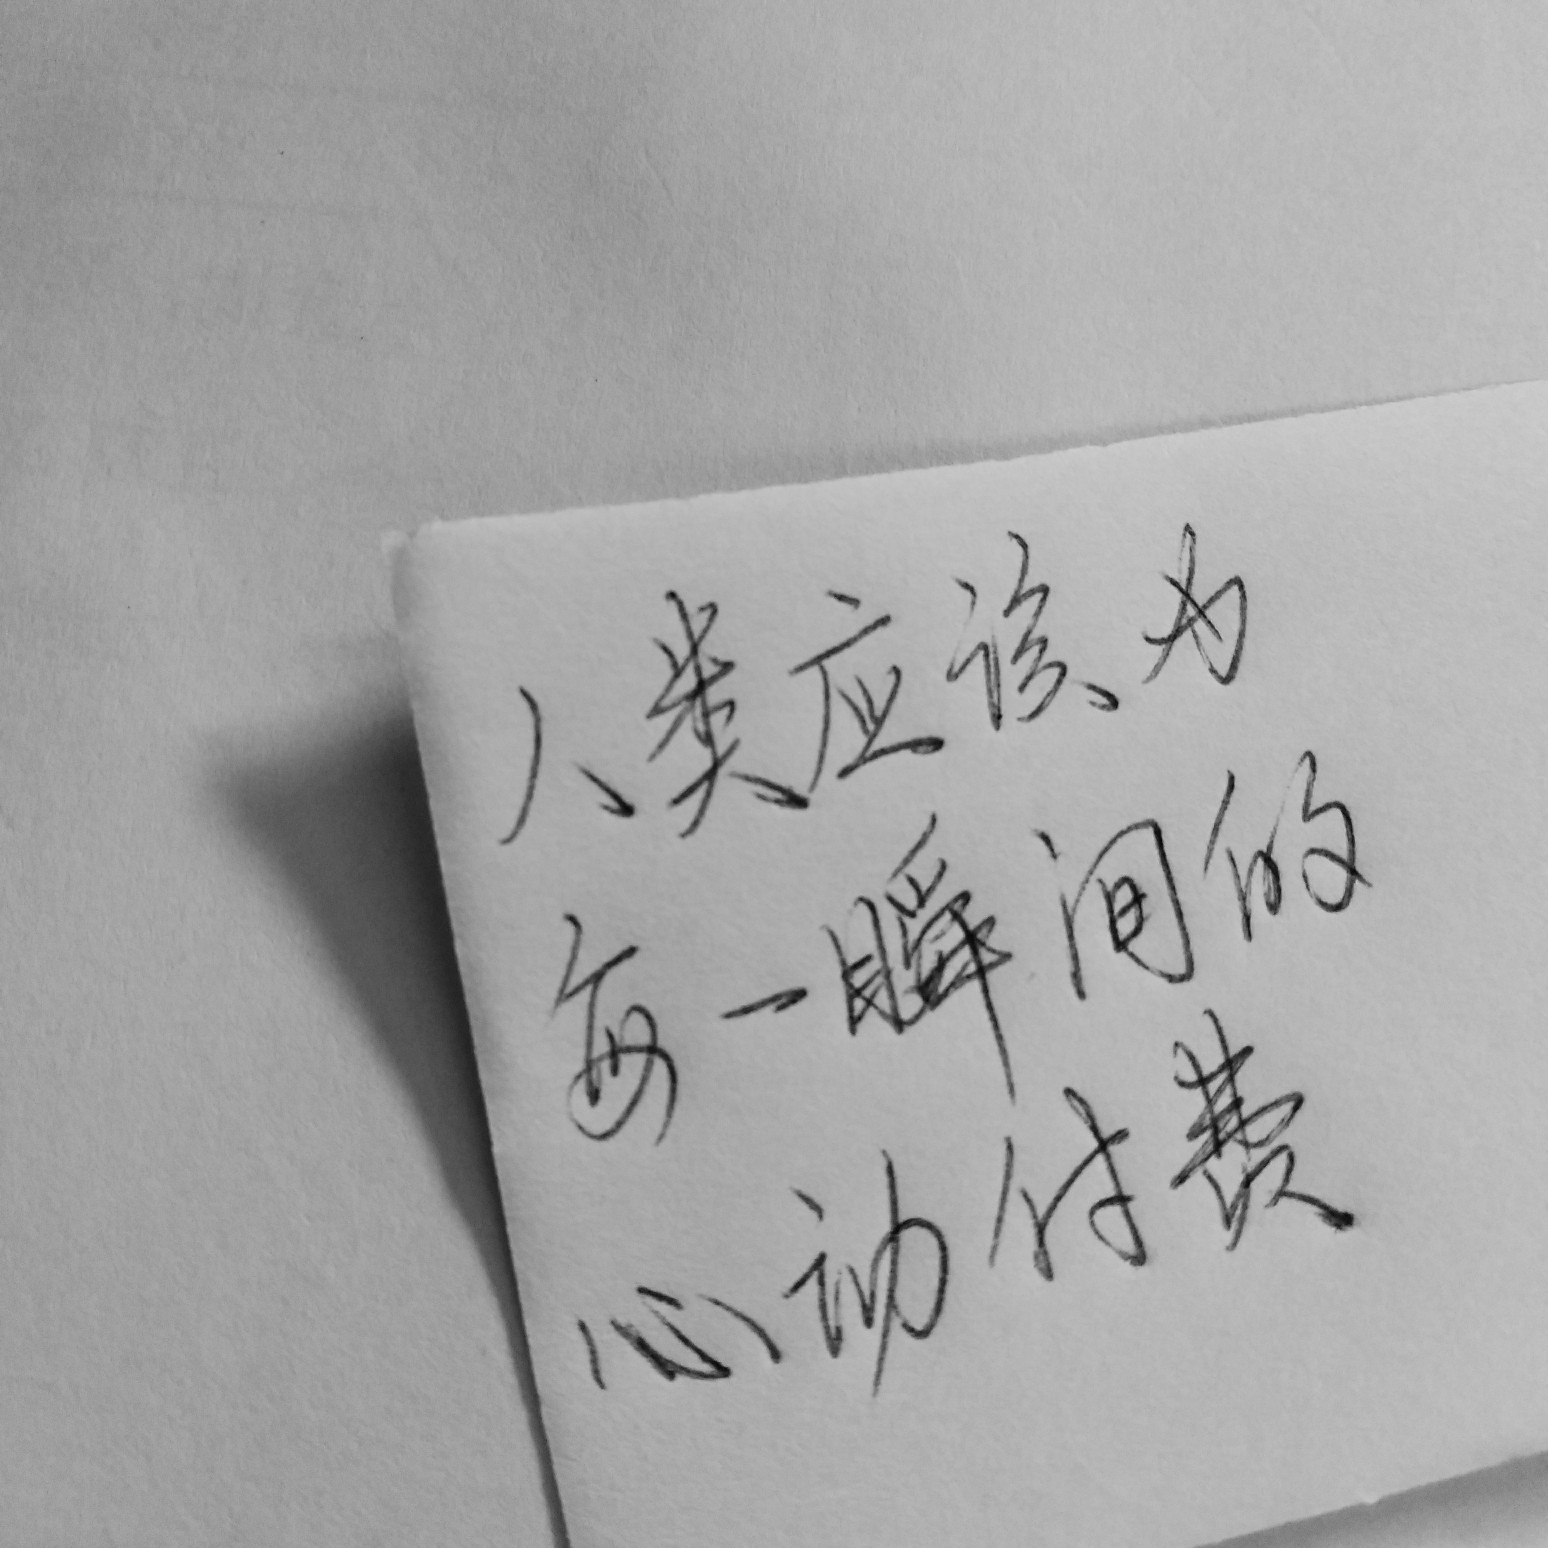 人类应该为
每一瞬间的
心动付费